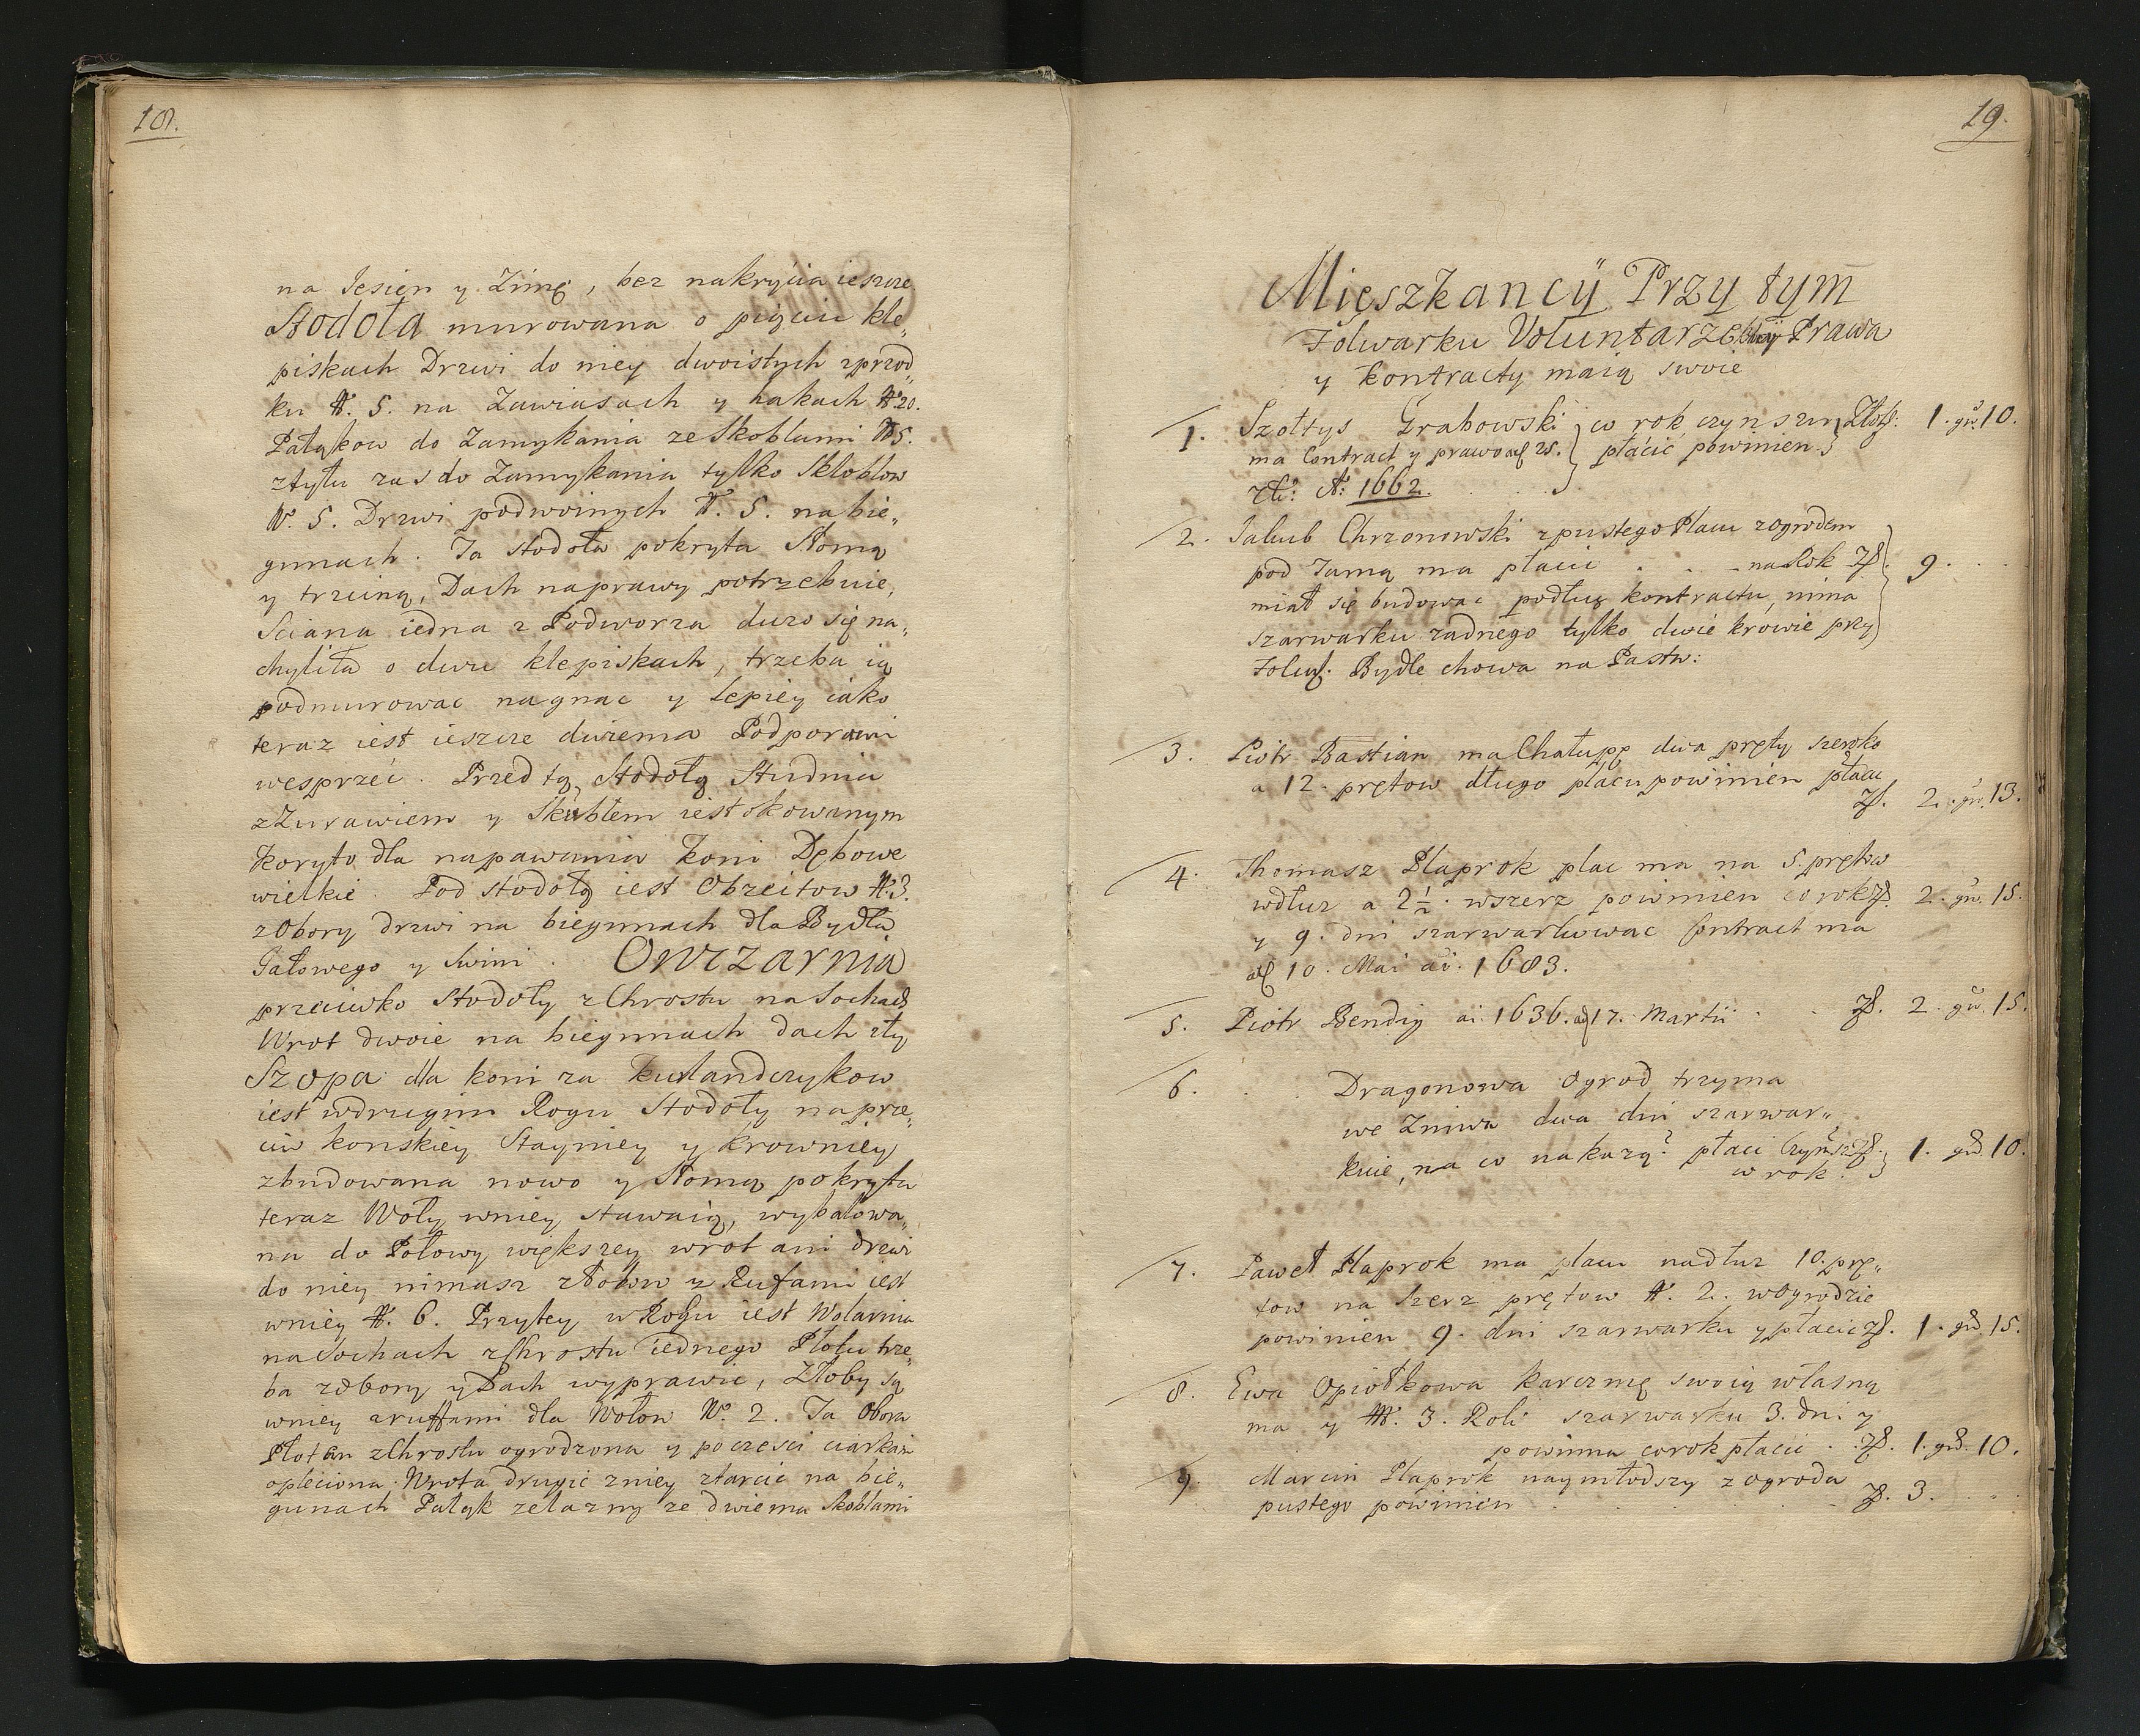 18.
na Jesień y Zimę, bez nakrycia ieszcze
Stodoła murowana o pięciu kle„
piskach Drzwi do niey dwoistych zprzod„
ku N. 5. na Zawiasach y hakach N 20.
Pałąkow do Zamykania ze Skoblami N 5.
ztyłu zas do Zamykania tylko Skloblow
N. 5. Drzwi podwoinych N. 5. na bie„
gunach. Ta stodoła pokryta Słomą
y trzciną, Dach naprawy potrzebuie,
Sciana iedna z Podworza duzo się na„
chyliła o dwu klepiskach, trzeba ią
podmurowac nagnac y lepiey iako
teraz iest ieszcze dwiema Podporami
wesprzeć. Przed tą Stodołą Studnia
z Zurawiem y Skublem iest okowanym
Koryto dla napawania Koni Dębowe
wielkie. Pod stodołą iest Obreitow N. 3.
z Obory drzwi na biegunach dla Bydła
Jałowego y Swini. Owczarnia
przeciwko Stodoły z Chrostu na Sochach
Wrot dwoie na biegunach dach zły
Szopa dla koni za Kurlandczykow
iest wdrugim Rogu Stodoły naprze„
ciw konskiey Stayniey y krowniey
zbudowana nowo y Słomą pokryta
teraz Woły wniey stawaią, wybalowa„
na do Połowy większey wrot ani drzwi
do niey nimasz złobow z Rufami iest
wniey N. 6. Przytey w Rogu iest Wolarnia
na Sochach z Chrostu iednego Płotu trze„
ba zObory y Dach wyprawic, Złoby są
wniey zruffami dla Wołow N. 2. Ta Obora
Płotem zChrostu ogrodzona y poczesci ciarkami
opleciona. Wrota drugie zniey ztarcic na bie„
gunach Pałąk zelazny ze dwiema Skoblami
19.
Mięszkancÿ Przy tym
Folwarku Voluntarze ktorzy Prawa
y kontracty maią swoie
1. Szołtys Grabowski co rok czynszu Złotß: 1. gr. 10.
ma Contract y prawo 25. płacić powinien
A: 1662.
2. Jakub Chrzonowski zpustego Placu zogrodem
pod Jamą ma płacic . . . na Rok Zß. 9.
miał się budowac podług kontractu, nima
szarwarku zadnego tylko dwie krowie przy
Folw. Bydle chowa na Pastw:
3. Piotr Bastian ma Chałupę dwa pręty szeroko
a 12. prętow długo placu powinien płacic
Zß. 2. gr. 13.
4. Thomasz Płaprok plac ma na 5. prętow
wdłuz a 2½. wszerz powinien co rok Zß. 2. gr. 15.
y 9. dni szarwarkowac Contract ma
10. Mai ai. 1683.
5. Piotr Bendig ai. 1636. 17. Martii . . Zß. 2. gr. 15.
6. Dragonowa ogrod trzyma
we Zniwa dwa dni szarwar„
kuie, na co nakazą? płaci Czynsz Zß. 1. gr. 10.
w rok.
7. Paweł Płaprok ma placu nadłuz 10. prę„
tow na Szerz prętow N. 2. wOgrodzie
powinien 9. dni szarwarku y płacic Zß. 1. gr. 15.
8. Ewa Opiołkowa karczmę swoią własną
ma y N. 3. Roli szarwarku 3. dni y
powinna corok płacic . Zß. 1. gr. 10.
9. Marcin Płaprok naymłodszy z ogroda
pustego powinien . . . Zß. 3.